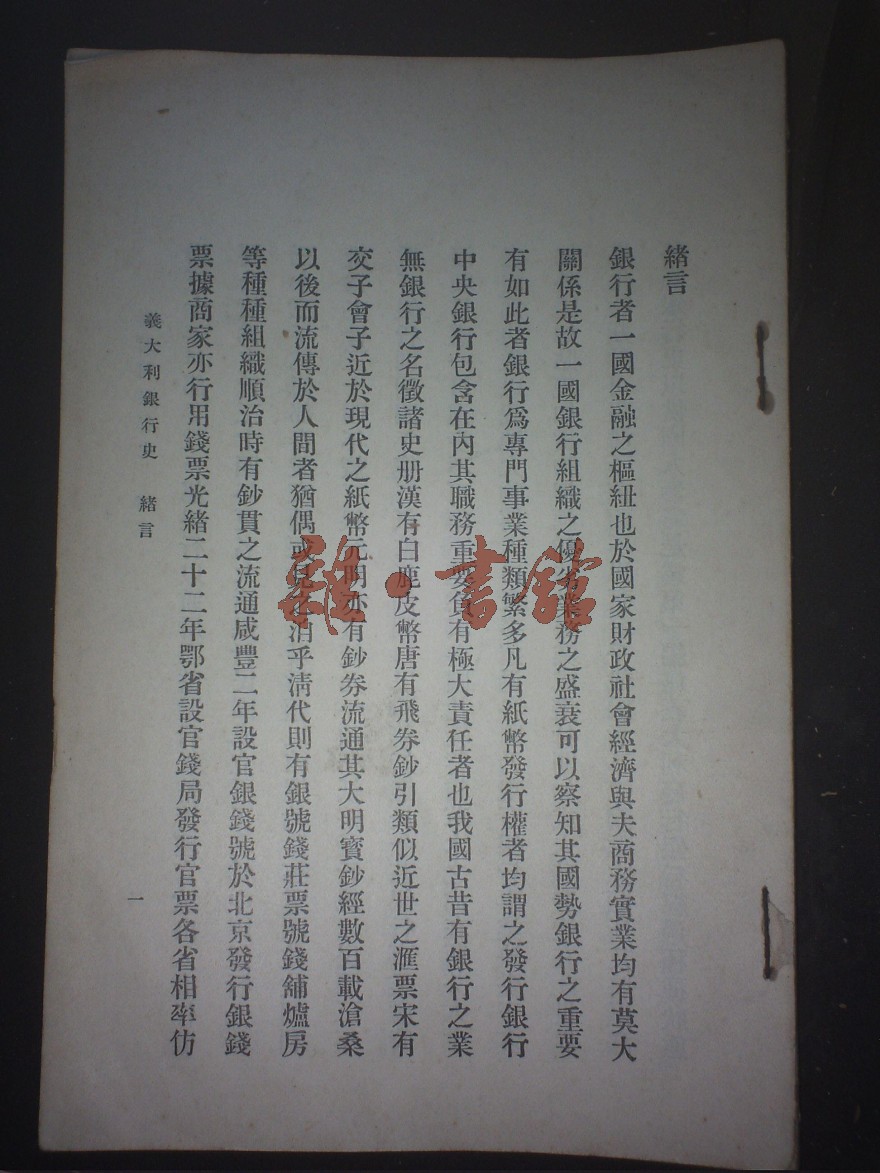 緒言
銀行者一國金融之樞紐也於國家財政社會經濟與夫商務實業均有莫大
關係是故一國銀行組織之優劣業務之盛衰可以察知其國勢銀行之重要
有如此者銀行爲專門事業種類繁多凡有紙幣發行權者均謂之發行銀行
中央銀行包含在內其職務重要負有極大責任者也我國古昔有銀行之業
無銀行之名徵諸史册漢有白鹿皮幣唐有飛券鈔引類似近世之滙票宋有
交子會子近於現代之紙幣元明亦有鈔券流通其大明寶鈔經數百載滄桑
以後而流傳於人間者猶偶或見之洎乎淸代則有銀號錢莊票號錢舖爐房
等種種組織順治時有鈔貫之流通咸豐二年設官銀錢號於北京發行銀錢
票據商家亦行用錢票光緒二十二年鄂省設官錢局發行官票各省相率仿
義大利銀行史 緒言
一
雜·書館